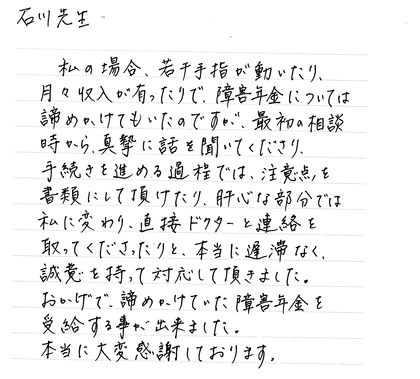 石川先生
私の場合、若干手指が動いたり、
月々収入が有ったりで、障害年金については
諦めかけてもいたのですが、最初の相談
時から、真摯に話を聞いてくださり、
手続きを進める過程では、注意点を
書類にして頂けたり、肝心な部分では
私に変わり、直接ドクターと連絡を
取ってくださったりと、本当に遅滞なく、
誠意を持って対応して頂きました。
おかげで、諦めかけていた障害年金を
受給する事が出来ました。
本当に大変感謝しております。